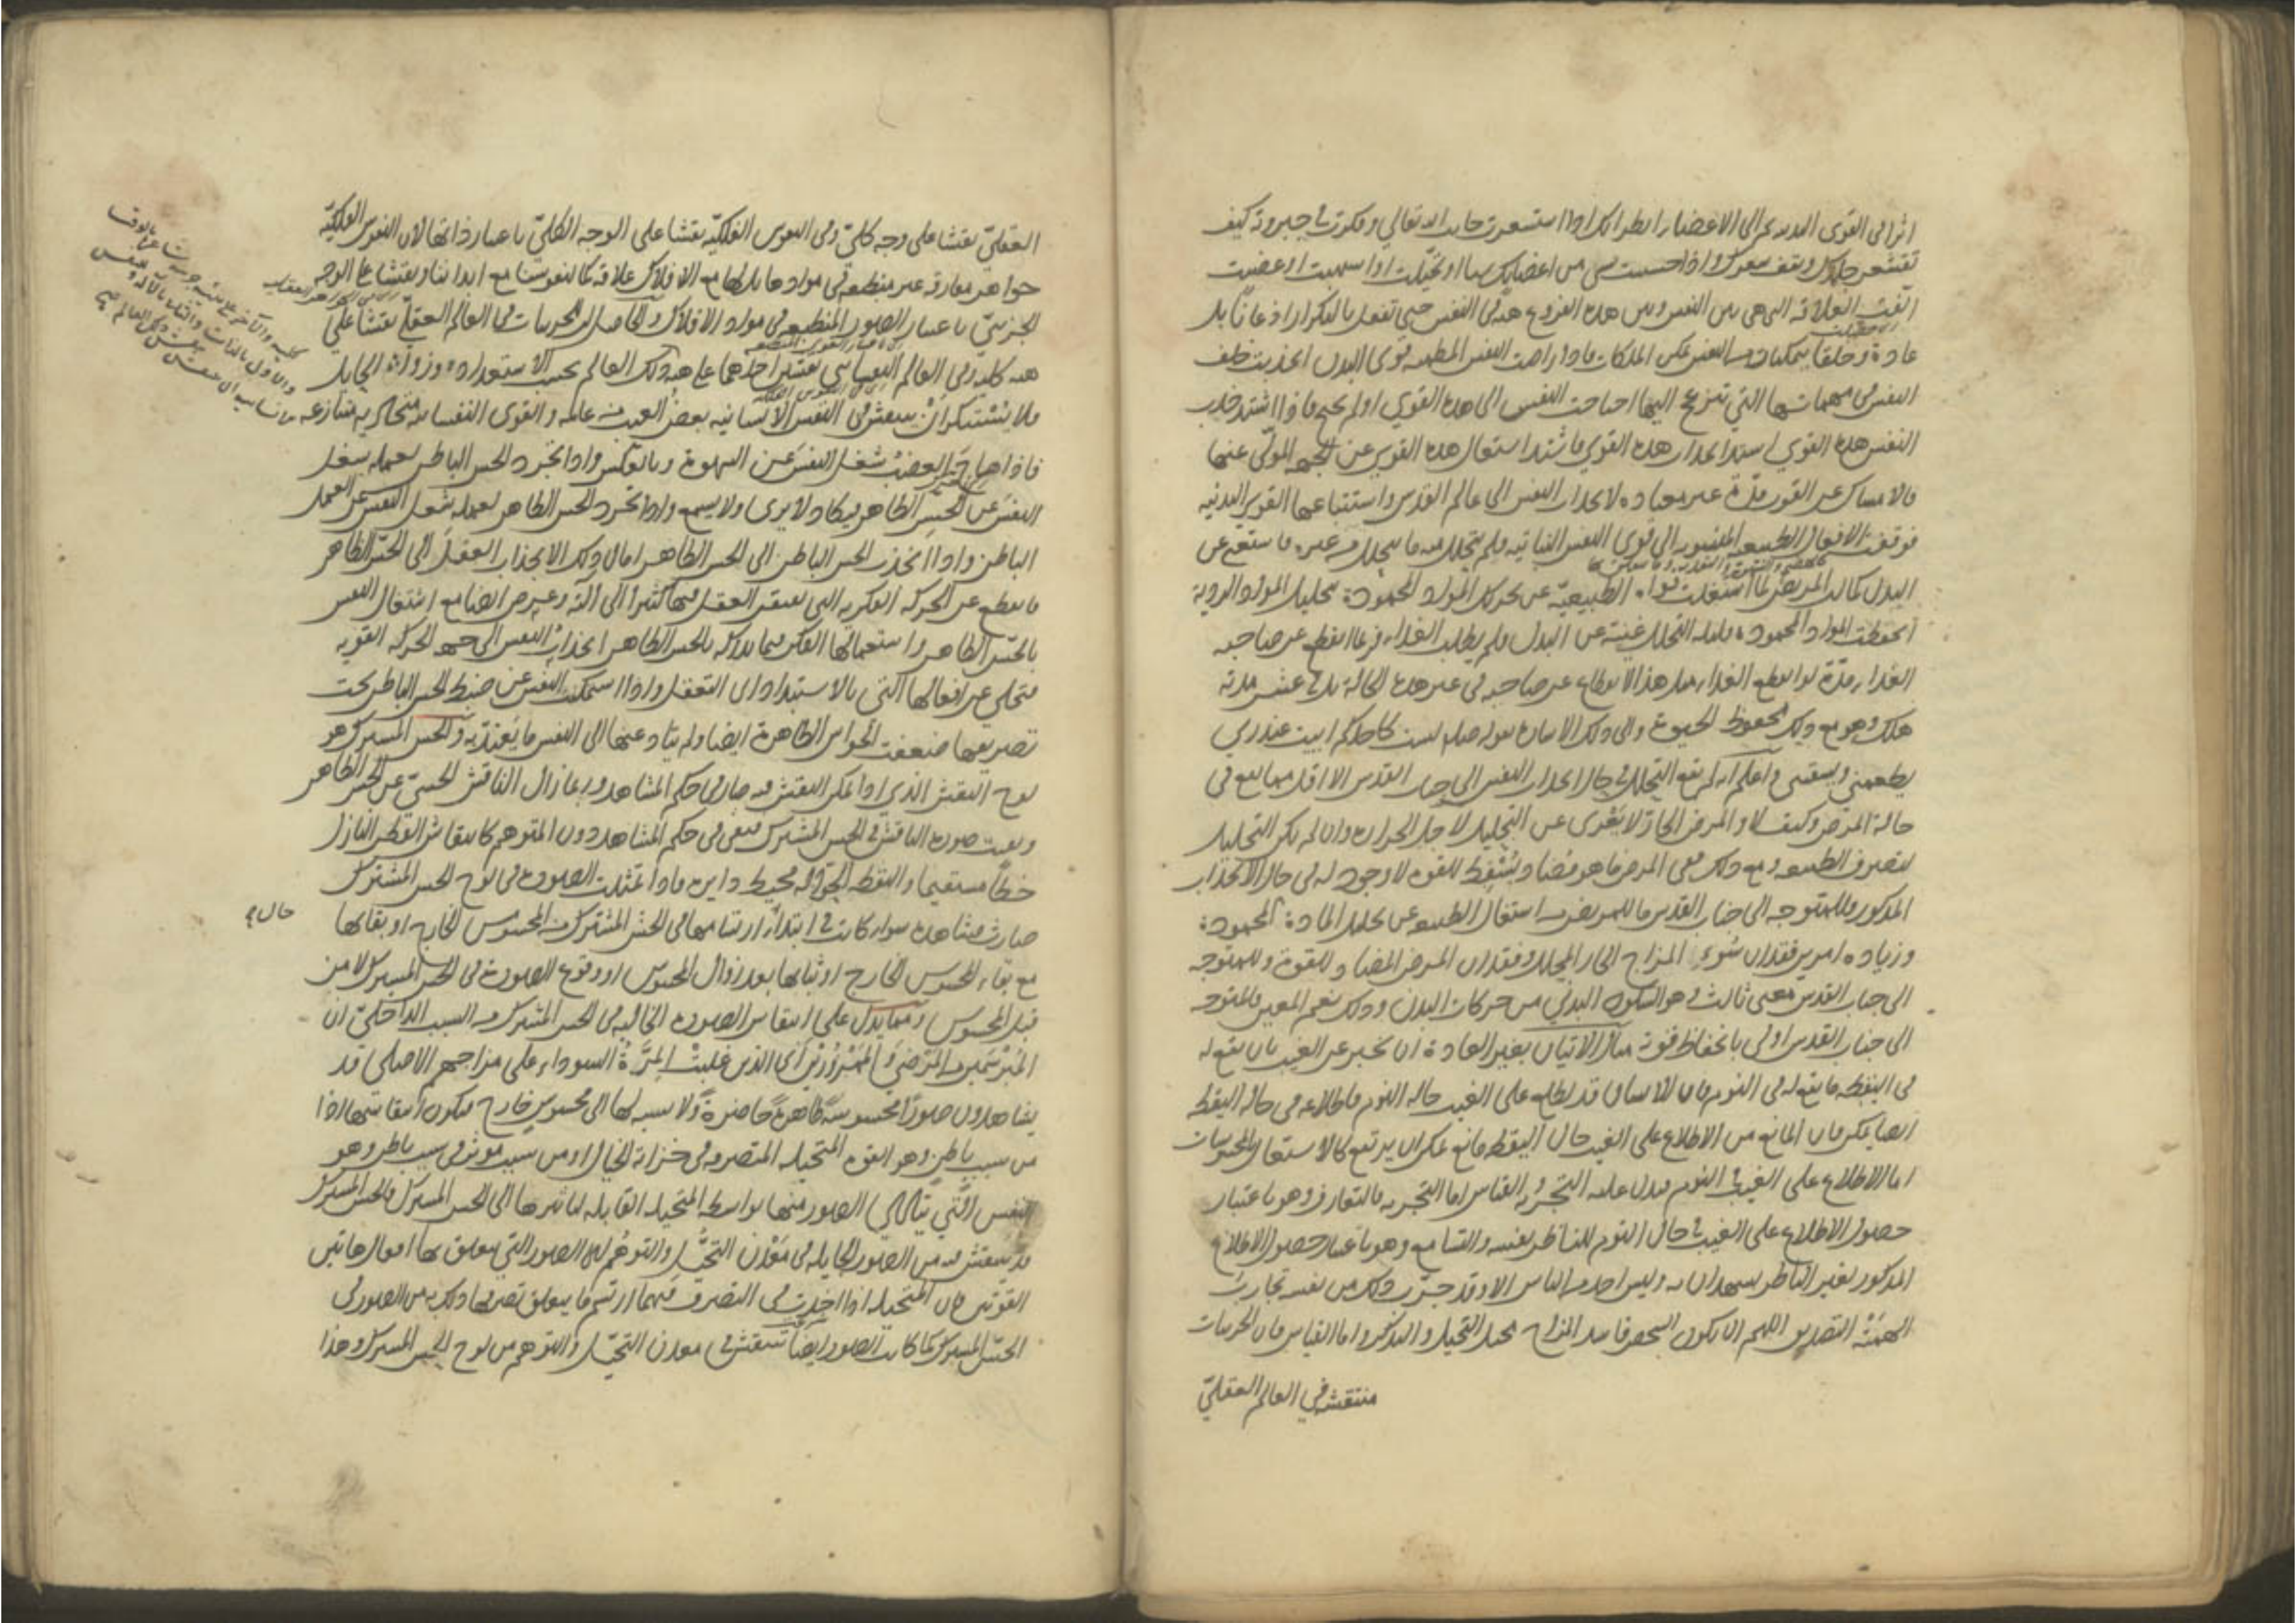 اثرا فى القوى البدنية ثم الى الاعضاء انظر انك اذا استشعرت جانب الله تعالى وفكرت فى جبروته كيف
تقشعر جلدك ويقف شعرك واذا احسست شى من اعضائك شيا او تخيلت او اشتهيت او غضبت
القت العلاقة التى هى بين النفس وبين هذه الفروع هيئة فى النفس حتى تفعل بالتكرار اذعانا بل
عادة وخلقا يتمكنان من النفس تمكن الملكات فاذا راضت النفس المطمئنة قوى البدن انجذبت خلف
النفس فى مهماتها التى تنزعج اليها احتاجت النفس الى هذه القوى او لم تحتج فاذا اشتد جذب
النفس هذه القوى اشتد انجذاب هذه القوى فاشتد اشتغال هذه القوى عن الجهة المولى عنها
فالامساك عن القوت مدة غير معتادة لانجذاب النفس الى عالم القدس واستتباعها القوى البدنية
فوقفت الافعال الطبيعية المنسوبة الى قوى النفس النباتية فلم يتحلل منه ما يتحلل من غيره فاستغنى عن
البدل كما ان المريض لما اشتغلت قواه الطبيعية عن تحريك المواد المحمودة بتحليل المواد الردية
انحفظت المواد المحمودة قليلة التحلل غنية عن البدل فلم يطلب الغذاء فربما انقطع عن صاحبه
الغذاء مدة لو انقطع الغذاء مثل هذا الانقطاع عن صاحبه فى غير هذه الحالة بل فى عشر مدته
هلك وهو مع ذلك محفوظ الحيوة والى ذلك الاشارة بقوله صلعم لست كاحدكم ابيت عند ربى
يطعمنى ويسقينى واعلم انه لم يقع التحلل فى حال انجذاب النفس الى جناب القدس الا اقل مما يقع فى
حالة المرض وكيف لا والمرض الحار لا يعرى عن التحليل لاجل الحرارة وان لم يكن التحليل
لتصرف الطبيعة ومع ذلك ففى المرض ما هو مضاد ومسقط للقوة لا وجود له فى حال الانجذاب
المذكور وللمتوجه الى جناب القدس ما للمريض من اشتغال الطبيعة عن تحليل المادة المحمودة
وزيادة امرين فقدان سوء المزاج الحار المحلل وفقدان المرض المضاد للقوة وللمتوجه
الى جناب القدس معنى ثالث وهو السكون البدنى من حركات البدن وذلك نعم المعين فالمتوجه
الى جناب القدس اولى بانحفاظ قوته مثال الاتيان بغير العادة ان يخبر عن الغيب بان يقع له
فى اليقظة ما يقع له فى النوم فان الانسان قد يطلع على الغيب حالة النوم فاطلاعه فى حالة اليقظة
ايضا ممكن فان المانع من الاطلاع على الغيب حال اليقظة مانع يمكن ان يرتفع كالاشتغال بالمحسوسات
اما الاطلاع على الغيب فى النوم فيدل عليه التجربة والقياس اما التجربة فالتعارف وهو باعتبار
حصول الاطلاع على الغيب فى حال النوم للناظر بنفسه والتسامع وهو باعتبار حصول الاطلاع
المذكور لغير الناظر يشهدان به وليس احد من الناس الا وقد جرب ذلك من نفسه تجارب
الهمته التصديق اللهم الا ان يكون الشخص فاسد المزاج مختل التخيل والتذكر واما القياس فان الجزئيات
منتقشة فى العالم العقلى
العقلى نقشا على وجه كلى وفى النفوس الفلكية نقشا على الوجه الكلى باعتبار ذاتها لان النفوس الفلكية
جواهر مفارقة غير منطبعة فى موادها بل لها مع الافلاك علاقة كما لنفوسنا مع ابداننا ونقشا على الوجه
الجزئى باعتبار الصور المنطبعة فى مواد الافلاك والحاصل ان للجزئيات فى العالم العقلى نقشا على
هيئة كلية وفى العالم النفسانى نقشين احدهما على هيئة ذلك العالم بحسب الاستعداد وزوال الحايل
فلا يستنكر ان ينتقش فى النفس الانسانية بعض الغيب من عالمه والقوى النفسانية متجاذبة متنازعة
فاذا هاج الغضب شغل النفس عن الشهوة وبالعكس واذا تجرد الحس الباطن لعمله شغل
النفس عن الحس الظاهر فيكاد لا يرى ولا يسمع واذا تجرد الحس الظاهر لعمله شغل النفس عن العمل
الباطن واذا انجذب الحس الباطن الى الحس الظاهر امال ذلك الانجذاب العقل الى الحس الظاهر
فانقطع عن الحركة الفكرية التى يفتقر العقل فيها كثيرا الى آلته وعرض ايضا مع اشتغال النفس
بالحس الظاهر واستعمالها الفكر فيما تدركه بالحس الظاهر انجذاب النفس الى جهة الحركة القوية
فتخلى عن افعالها التى بالاستبداد اى التعقل واذا استمكنت النفس عن ضبط الحس الباطن تحت
تصريفها ضعفت الحواس الظاهرة ايضا ولم يتاد عنها الى النفس ما يعتد به والحس المشترك هو
لوح النقش الذى اذا تمكن النقش منه صار فى حكم المشاهد وربما زال الناقش الحسى عن الحس الظاهر
وبقيت صورة الناقش فى الحس المشترك فيبقى فى حكم المشاهد دون المتوهم كانتقاش القطر النازل
خطا مستقيما والنقطة الجوالة محيط دايرة فاذا تمثلت الصورة فى لوح الحس المشترك
صارت مشاهدة سواء كانت فى ابتداء ارتسامها فى الحس المشترك من المحسوس الخارج او بقائها
حال
مع بقاء المحسوس الخارج او ثباتها بعد زوال المحسوس او وقوع الصورة فى الحس المشترك لا من
قبل المحسوس ومما يدل على انتقاش الصورة الخالية فى الحس المشترك من السبب الداخلى ان
المبرسمين من المرضى والممرورين اى الذين غلبت المرة السوداء على مزاجهم الاصلى قد
يشاهدون صورا محسوسة ظاهرة حاضرة ولا نسبة لها الى محسوس خارج فيكون انتقاشها اذا
من سبب باطن وهو القوة المتخيلة المتصرفة فى خزانة الخيال او من سبب مؤثر فى سبب باطن وهو
النفس التى يتادى الصور منها بواسطة المتخيلة القابلة لتاثيرها الى الحس المشترك والحس المشترك
قد ينتقش منه من الصور الجايلة فى معدن التخيل والتوهم اى الصور التى يتعلق بها افعال هاتين
القوتين فان المتخيلة اذا اخذت فى التصرف فيهما ارتسم ما يتعلق تصرفها ذلك به من الصور فى
الحس المشترك كما كانت الصور ايضا تنتقش فى معدن التخيل والتوهم من لوح الحس المشترك وهذا